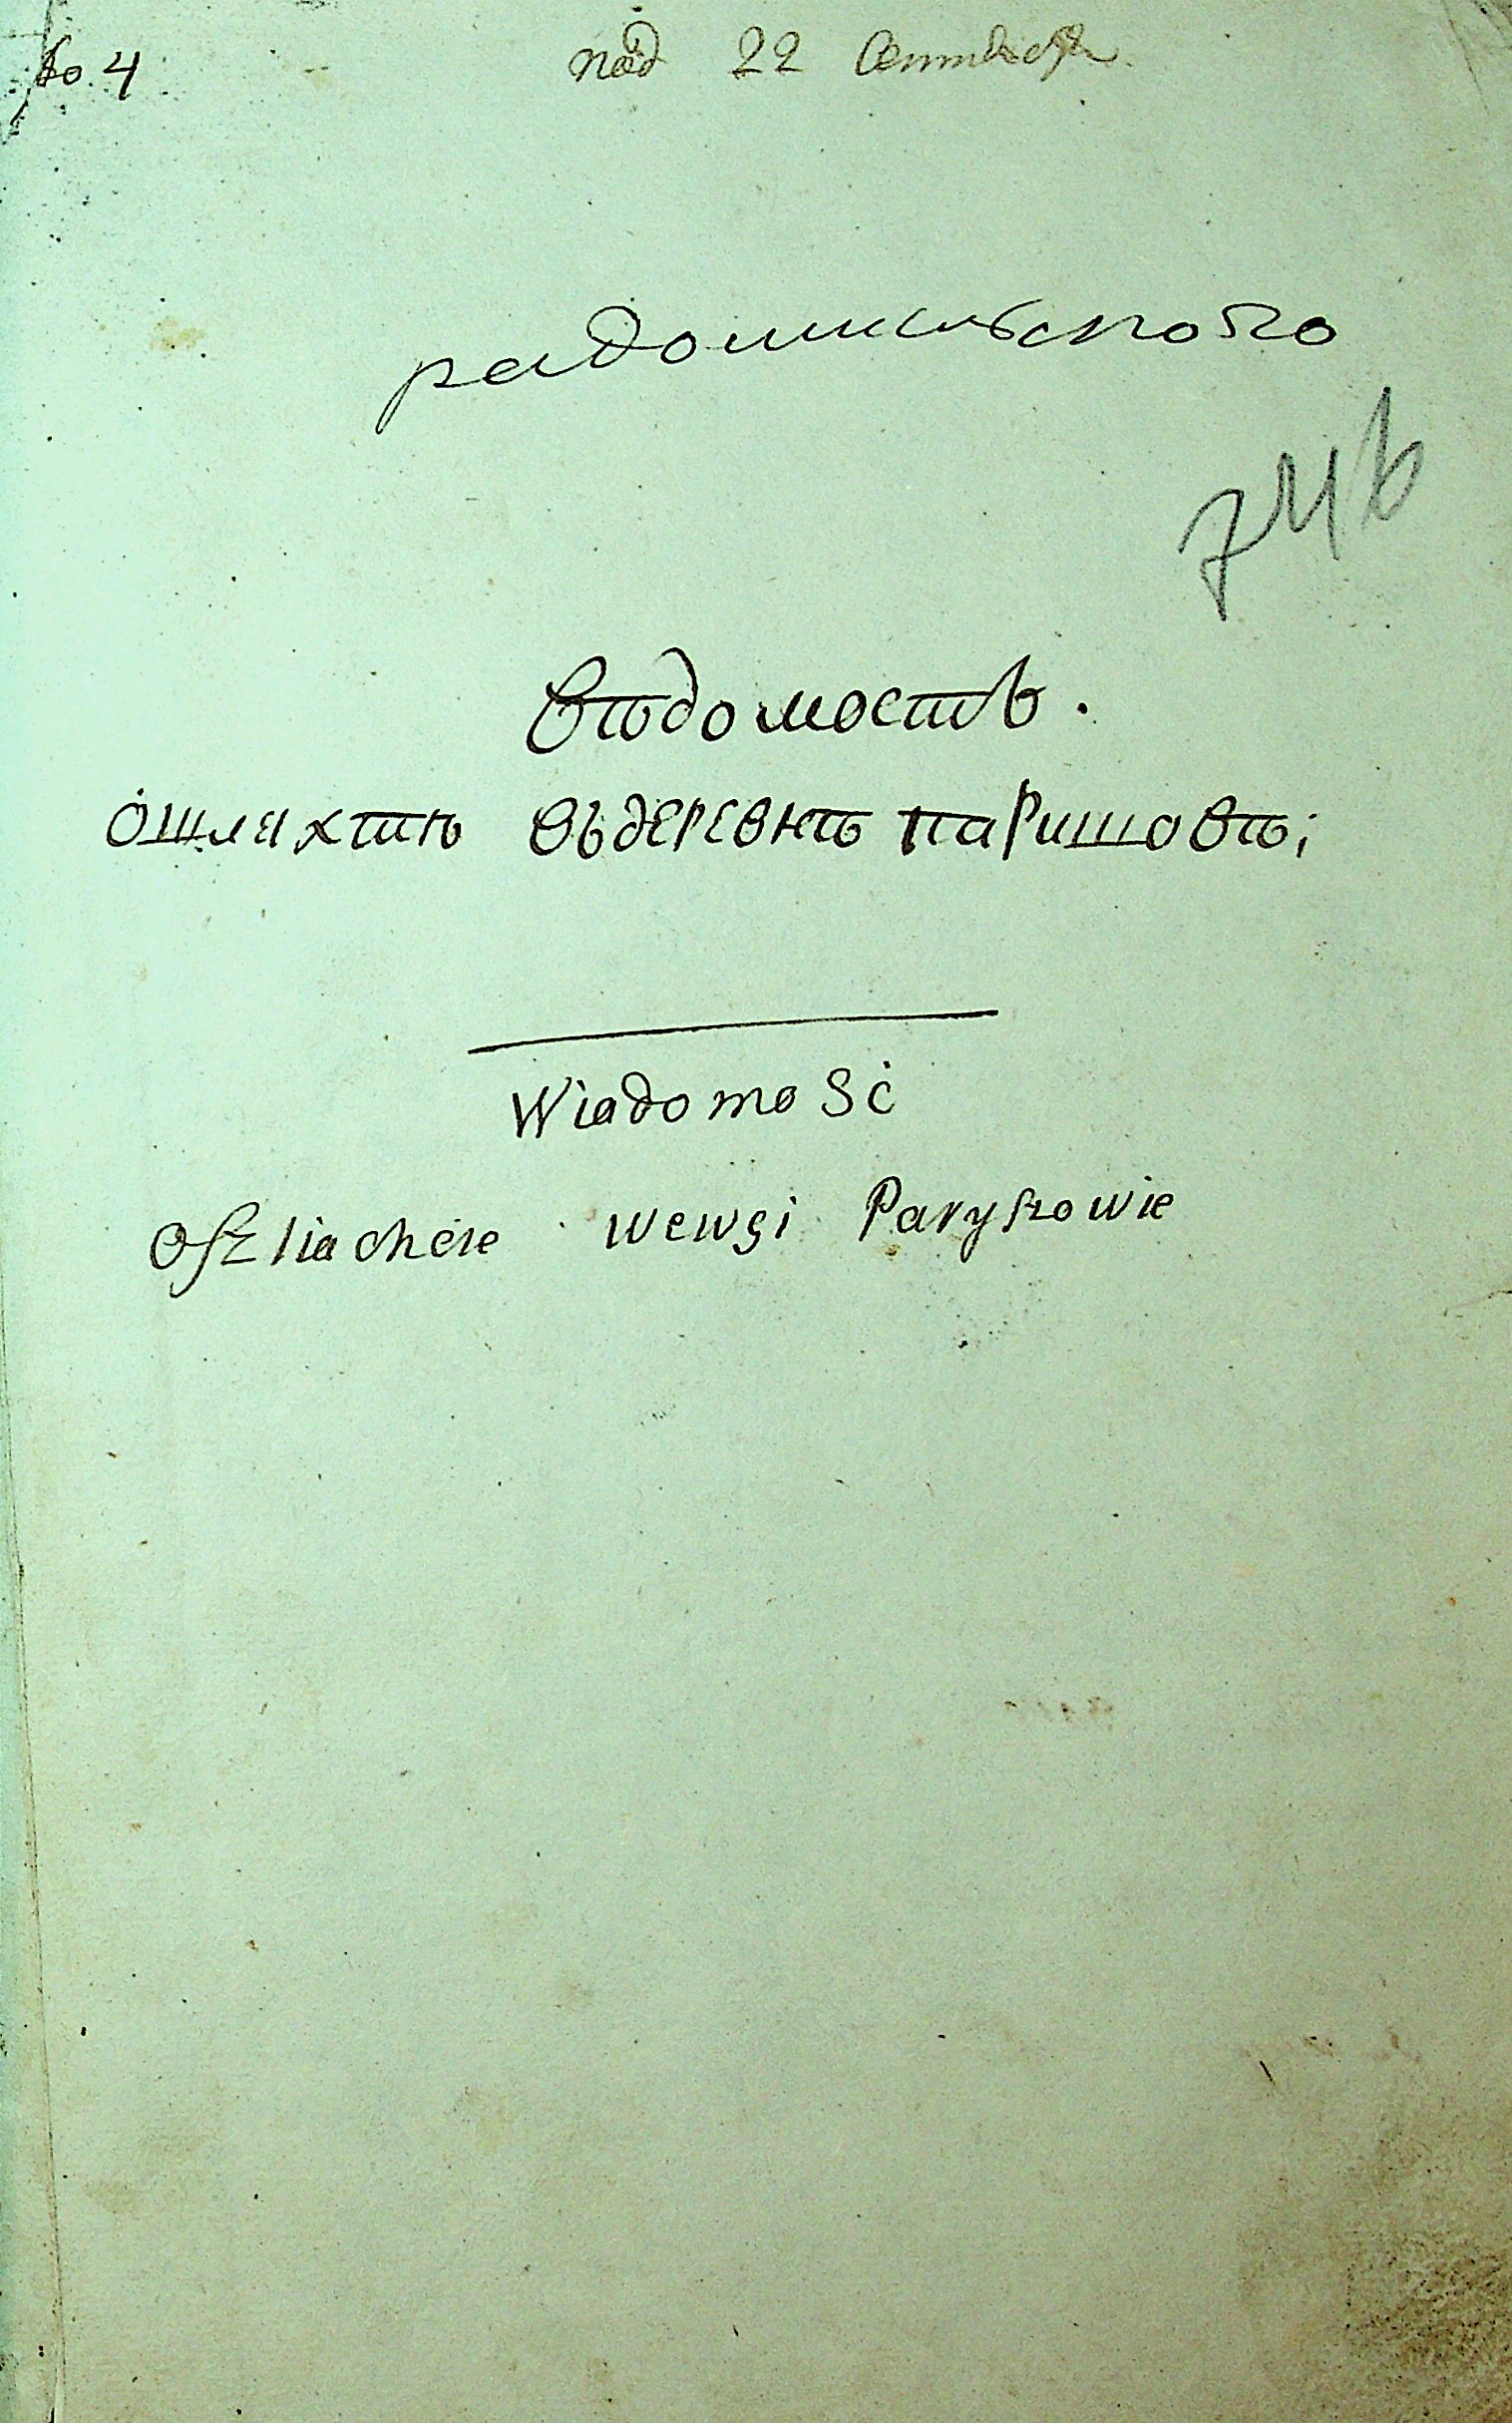 No. 4
22 Сентября.
радомисльского
746
Вѣдомость.
ошляхтѣ въдеревнѣ паришовѣ;
Wiadomość
Oszliachcie wewsi Paryszowie